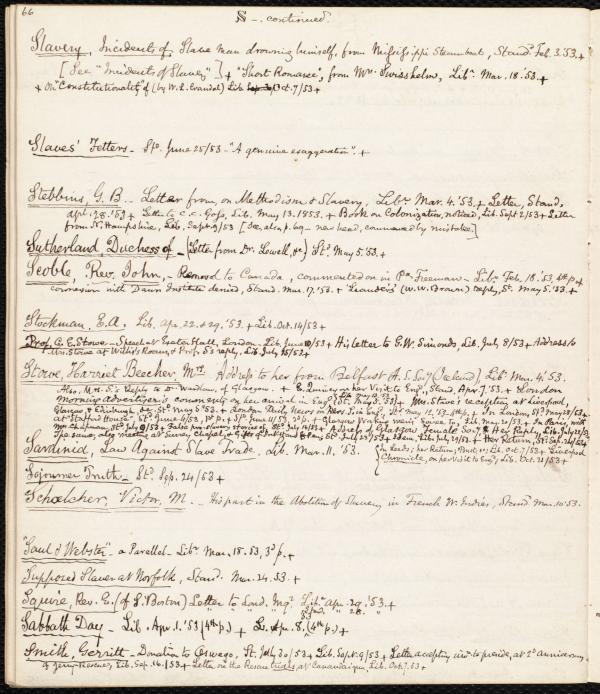 66
S -. continued.
Slavery, Incidents of, Slave man drowning himself, from Mississippi Steamboat, Stand. Feb. 3.'53.+
[See "Incidents of Slavery"] + "Short Romance", from Mrs. Swisshelm, Libr. Mar. 18.'53.+
+ On "Constitutionality" of (by W. L. Crandal) Lib. Oct. 7/53+
Slaves' Fetters - St. June 25/53 - "A genuine exaggeration".+
Stebbins, G. B. - Letter from, on Methodism & Slavery, Libr. Mar. 4.'53.+ Letter, Stand.
Apl. 28.'53+ Letter to C. C. Goss, Lib. May 13.1853.+ Book on Colonization, noticed, Lib. Sept 2/53+ Letter
from N. Hampshire, Lib. Sept. 9/53 [See, also, p. 69 - new head, commenced by mistake.]
Sutherland, Duchess of - (Letter from Dr. Lowell, &c) St. May 5.'53.+
Scoble, Rev. John, - Removal to Canada, commented on in Pa. Freeman - Libr. Feb. 18.'53, 4th p.+
connexion with Dawn Institute denied, Stand. Mar. 17.'53.+ "Leander's" (W. W. Brown) reply, St. May 5.'53.+
Stockman, E. A. Lib. Apr. 22.& 29.'53.+ Lib. Oct. 14/53+
Prof. C. E. Stowe - Speech at Exeter Hall, London - Lib. June 10/53+ His Letter to G. W. Simonds, Lib. July 8/53+ Address to
+ Mrs. Stowe at Willis's Rooms, & Prof. S's reply, Lib. July 15/52+
Stowe, Harriet Beecher, Mrs. Address to her from Belfast A. S. Socy (Ireland) Libr. Mar. 4.'53.
Also, Mrs. S.'s Reply to Dr. Wardlaw, of Glasgow.+ E. Quincy on her Visit to Engd., Stand. Apr. 7.'53.+ London
Morning Advertiser's comments on her arrival in Engd. St. May 5.'53+ Mrs. Stowe's reception at Liverpool,
Glasgow & Edinburgh, &c. St. May 6.'53.+ London Punch, News on Mrs. S. in Eng., Lib. May 12,'53.4th p.+ In London, St. May 28/53+
at Stafford House - St. June 4/53, 1st p.+ St. June 11/53, 3d p.+ Glasgow Soiree to, Lib. May 20/53+ In Paris, with
Mrs. Chapman, St. July 9/53+ False pro-slavery stories of St. July 16/53+ Address of Glasgow Female Socy & her Reply, Lib. July 22/53
The same; also meeting at Surrey Chapel, & Gifts of Inkstand St. July 23/53+ Idem. Lib. July 29/53+ Her Return, St. Sep. 24/53+
Sardinia, Law Against Slave Trade. Lib. Mar. 11.'53. {In Leeds; her Return; Lib. Oct. 7/53+ Liverpool
Chronicle, on her visit to Engd., Lib. Oct. 21/53+
Sojourner Truth - St. Sep. 24/53+
Schoelcher, Victor, M. - His part in the Abolition of Slavery in French W. Indies, Stand. Mar. 10.'53.
"Saul & Webster" - a Parallel - Libr. Mar. 18.53, 3d p.+
Supposed Slaver at Norfolk, Stand. Mar. 24.53.+
Squire, Rev. E. (of S. Boston) Letter to Lond. Inqr. Libr. Apr. 29.'53.+
Stand. " 28. "
Sabbath Day - Lib. Apr. 1.'53 (4th p.) + Lib. Apr. 8. (4th p.) +
Smith, Gerritt - Donation to Oswego, St. July 30/53+ Lib. Sept. 9/53+ Letter accepting invn. to preside, at 2d anniversy.
of Jerry-Rescue, Lib. Sep. 16/53+ Letter on the Rescue trials at Canandaigua, Lib. Oct. 7.53+